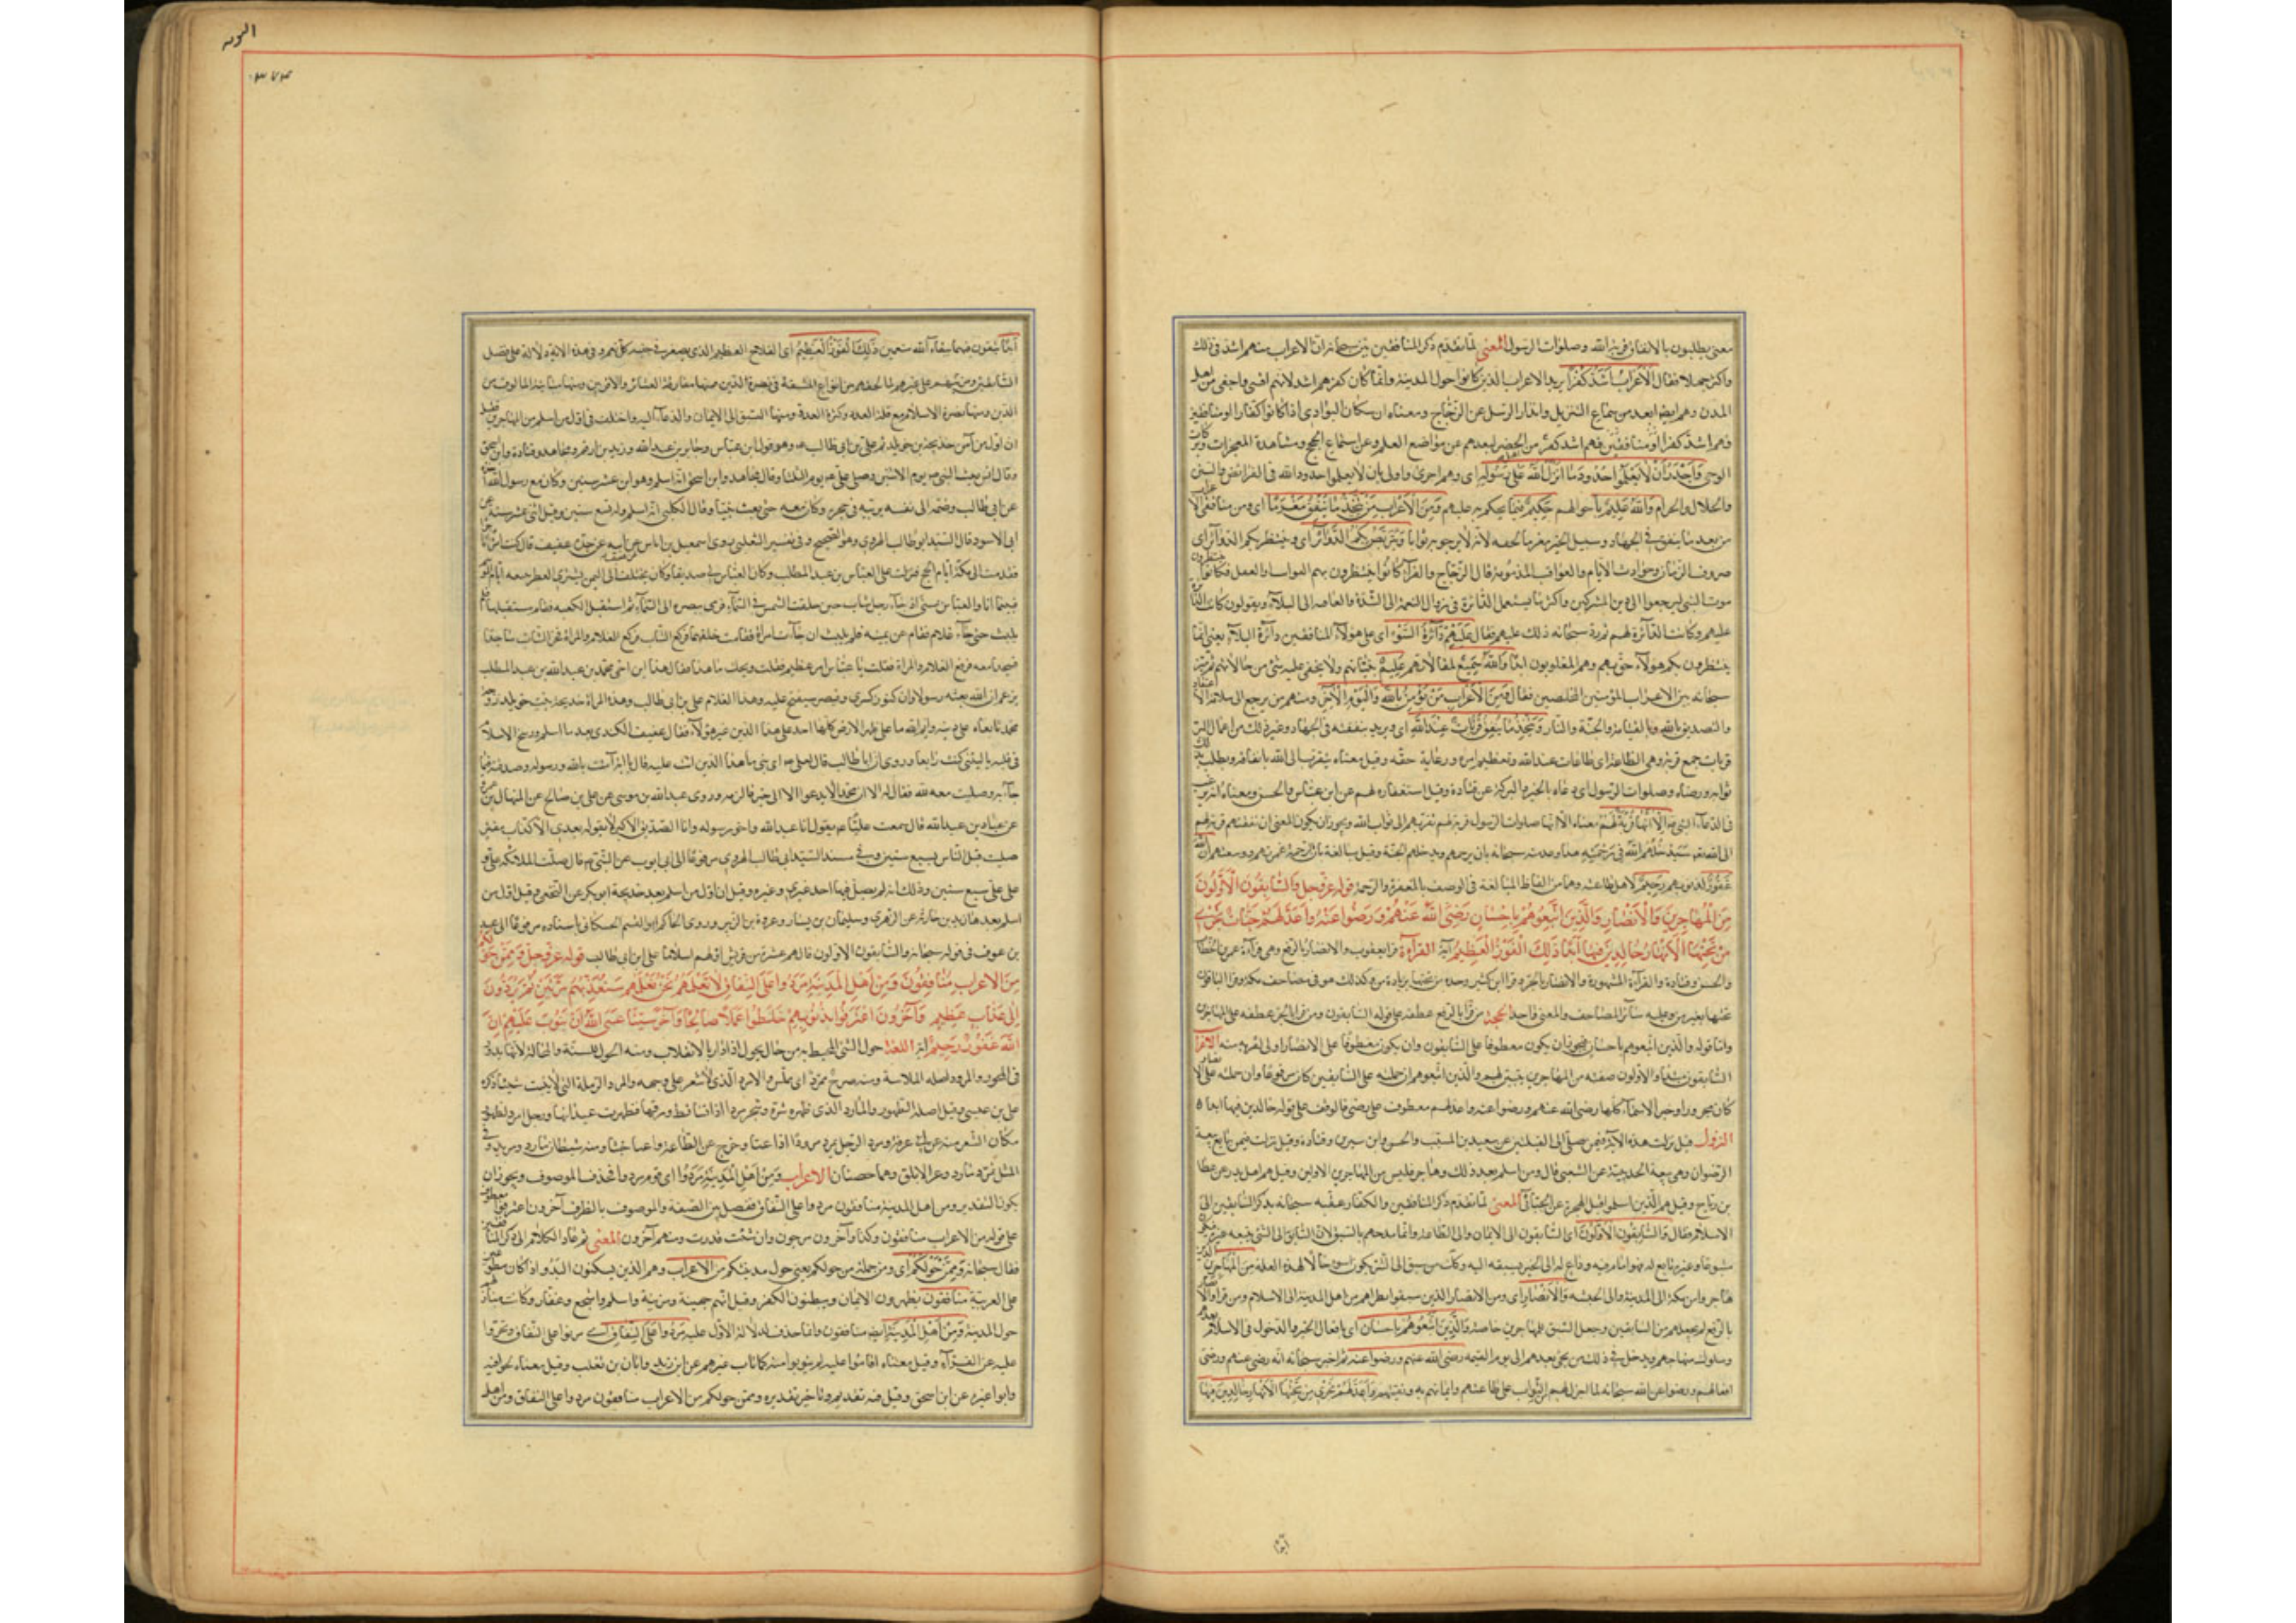 معنى يطلبون بالانفاق قربة الله وصلوات الرسول المعنى لما تقدم ذكر المنافقين بين سبحانه ان الاعراب منهم اشد في ذلك
واكثر جهلا فقال الْاَعْرَابُ اَشَدُّ كُفْرًا يريد الاعراب الذين كانوا حول المدينة وانما كان كفرهم اشد لانهم اقسى واجفى من اهل
المدن وهم ايضا ابعد من سماع التنزيل وانذار الرسل عن الزجاج ومعناه ان سكان البوادي اذا كانوا كفارا او منافقين
فهم اشد كفرا او منافقين فهم اشد كفرا من الحضر لبعدهم عن مواضع العلم وعن استماع الحجج ومشاهدة المعجزات وبركات
الوحي وَاَجْدَرُ اَنْ لَا يَعْلَمُوا حُدُودَ مَا اَنْزَلَ اللهُ عَلَى رَسُولِهِ اى وهم احرى واولى بان لا يعلموا حدود الله في الفرائض والسنن
والحلال والحرام وَاللهُ عَلِيمٌ باحوالهم حَكِيمٌ فيما يحكم به عليهم وَمِنَ الْاَعْرَابِ مَنْ يَتَّخِذُ مَا يُنْفِقُ مَغْرَمًا اى ومن منافقى الاعراب
من يعد ما ينفق في الجهاد وسبيل الخير مغرما لحقه لانه لا يرجو به ثوابا وَيَتَرَبَّصُ بِكُمُ الدَّوَائِرَ اى وينتظر بكم الدوائر اى
صروف الزمان وحوادث الايام والعواقب المذمومة قال الزجاج والفراء كانوا ينتظرون بهم الموت او القتل فكانوا ينتظرون
موت النبي ليرجعوا الى دين المشركين واكثر ما يستعمل الدائرة في زوال النعمة الى الشدة والعافية الى البلاء ويقولون كانت الدائرة
عليهم وكانت الدائرة لهم ثم رد سبحانه ذلك عليهم فقال عَلَيْهِمْ دَائِرَةُ السَّوْءِ اى على هؤلاء المنافقين دائرة البلاء يعنى انما
ينتظرون بكم هؤلاء حق بهم وهم المغلوبون ابدا وَاللهُ سَمِيعٌ لمقالاتهم عَلِيمٌ بنياتهم ولا يخفى عليه شئ من حالاتهم ثم بين
سبحانه من الاعراب المؤمنين المخلصين فقال وَمِنَ الْاَعْرَابِ مَنْ يُؤْمِنُ بِاللهِ وَالْيَوْمِ الْآخِرِ ومنهم من يرجع الى سلامة الاعتقاد
والتصديق بالله وبالقيامة والجنة والنار وَيَتَّخِذُ مَا يُنْفِقُ قُرُبَاتٍ عِنْدَ اللهِ اى ويريد بنفقته في الجهاد وغير ذلك من اعمال البر
قربات جمع قربة وهي الطاعة اى طاعات عند الله وتعظيم امره ورعاية حقه وقيل معناه يتقرب الى الله بانفاقه ويطلب بذلك
ثوابه ورضاه وصلوات الرسول اى دعاه بالخير والبركة عن قتادة وقيل استغفاره لهم عن ابن عباس والحسن ومعناه انه يرغب
في الدعاء النبي اَلَا اِنَّهَا قُرْبَةٌ لَهُمْ معناه الا انها صلوات الرسول قربة لهم تقربهم الى ثواب الله ويجوز ان يكون المعنى ان نفقتهم قربة لهم
الى الله تعالى سَيُدْخِلُهُمُ اللهُ فِي رَحْمَتِهِ هذا وعد منه سبحانه بان يرحمهم ويدخلهم الجنة وقيل مبالغة بان الرحمة غمرتهم ووسعتهم اِنَّ اللهَ
غَفُورٌ لذنوبهم رَحِيمٌ لاهل طاعته وهما من الفاظ المبالغة في الوصف بالمغفرة والرحمة قوله عز وجل وَالسَّابِقُونَ الْاَوَّلُونَ
مِنَ الْمُهَاجِرِينَ وَالْاَنْصَارِ وَالَّذِينَ اتَّبَعُوهُمْ بِاِحْسَانٍ رَضِيَ اللهُ عَنْهُمْ وَرَضُوا عَنْهُ وَاَعَدَّ لَهُمْ جَنَّاتٍ تَجْرِي
مِنْ تَحْتِهَا الْاَنْهَارُ خَالِدِينَ فِيهَا اَبَدًا ذَلِكَ الْفَوْزُ الْعَظِيمُ آية القراءة قرا يعقوب والانصار بالرفع وهي قراءة عمر بن الخطاب
والحسن وقتادة والقراءة المشهورة والانصار بالجر وقرا ابن كثير وحده من تحتها بزيادة من وكذلك هو في مصاحف مكة وقرا الباقون
تحتها بغير من وعليه سائر المصاحف والمعنى واحد الحجة من قرا بالرفع عطفه على قوله السابقون ومن قرا بالجر عطفه على المهاجرين
واما قوله والذين اتبعوهم باحسان فيجوز ان يكون معطوفا على السابقون وان يكون معطوفا على الانصار اولى لقربه منه الاعراب
السابقون مبتدأ والاولون صفته من المهاجرين تبيين لهم والذين اتبعوهم ان حملته على السابقين كان مرفوعا وان حملته على الانصار
كان مجرورا وخبر الابتداء كلها رضى الله عنهم ورضوا عنه واعد لهم معطوف على رضى فالوقف على قوله خالدين فيها ابدا
النزول قيل نزلت هذه الآية فيمن صلى الى القبلتين عن سعيد بن المسيب والحسن وابن سيرين وقتادة وقيل نزلت فيمن بايع بيعة
الرضوان وهي بيعة الحديبية عن الشعبي قال ومن اسلم بعد ذلك وهاجر فليس من المهاجرين الاولين وقيل هم اهل بدر عن عطا
بن رباح وقيل هم الذين اسلموا قبل الهجرة عن الجبائي المعنى لما تقدم ذكر المنافقين والكفار عقبه سبحانه بذكر السابقين الى
الاسلام فقال وَالسَّابِقُونَ الْاَوَّلُونَ اى السابقون الى الايمان والى الطاعة وانما مدحهم بالسبق لان السابق الى الشئ يتبعه غيره فيكون
متبوعا وغيره تابع له فهو امام فيه وداع له الى الخير بسبقه اليه وكذلك من سبق الى الشر يكون اسوء حالا لهذه العلة مِنَ الْمُهَاجِرِينَ الذين
هاجروا من مكة الى المدينة والى الحبشة وَالْاَنْصَارِ اى ومن الانصار الذين سبقوا نظراءهم من اهل المدينة الى الاسلام ومن قرا والانصار
بالرفع لم يجعلهم من السابقين وجعل السبق للمهاجرين خاصة وَالَّذِينَ اتَّبَعُوهُمْ بِاِحْسَانٍ اى بافعال الخير والدخول في الاسلام بعدهم
وسلوك منهاجهم ويدخل في ذلك من يجئ بعدهم الى يوم القيمة رضى الله عنهم ورضوا عنه ثم اخبر سبحانه انه رضى عنهم ورضى
افعالهم ورضوا عن الله سبحانه لما اجزل لهم من الثواب على طاعتهم وايمانهم به ويقينهم وَاَعَدَّ لَهُمْ جَنَّاتٍ تَجْرِي مِنْ تَحْتِهَا الْاَنْهَارُ خَالِدِينَ فِيهَا
التوبه
٣٧٣
اَبَدًا يبقون فيها ببقاء الله منعمين ذَلِكَ الْفَوْزُ الْعَظِيمُ اى الفلاح العظيم الذى يصغر في جنبه كل نعيم وفي هذه الآية دلالة على فضل
السابقين ومزيتهم على غيرهم لما لحقهم من انواع المشقة في نصرة الدين فمنها مفارقة العشائر والاقربين ومنها مباينة المألوف من
الدين ومنها نصرة الاسلام مع قلة العدد وكثرة العدو ومنها السبق الى الايمان والدعاء اليه واختلف في اول من اسلم من المهاجرين فقيل
ان اول من آمن خديجة بنت خويلد ثم على بن ابى طالب ع وهو قول ابن عباس وجابر بن عبد الله وزيد بن ارقم ومجاهد وقتادة وابن اسحق
وقال انس بعث النبي ص يوم الاثنين وصلى على ع يوم الثلثا وقال مجاهد وابن اسحق انه اسلم وهو ابن عشر سنين وكان مع رسول الله اخذه
من ابى طالب وضمه الى نفسه يربيه في حجره وكان معه حتى بعث نبيا وقال الكلبى انه اسلم وله تسع سنين وقيل اثنتى عشر سنة عن
ابى الاسود قال السيد ابو طالب الهروى وهو الصحيح وفي تفسير الثعلبي روى اسمعيل بن اياس بن عفيف عن ابيه عن جده عفيف قال كنت امرأ تاجرا
فقدمت الى مكة ايام الحج فنزلت على العباس بن عبد المطلب وكان العباس لى صديقا وكان يختلف الى اليمن يشترى العطر فيبيعه ايام الموسم
فبينما انا والعباس بمنى اذ جاء رجل شاب حين حلقت الشمس في السماء فرمى ببصره الى السماء ثم استقبل الكعبة فقام مستقبلها فلم
يلبث حتى جاء غلام فقام عن يمينه فلم يلبث ان جاءت امرأة فقامت خلفهما فركع الشاب فركع الغلام والمرأة فخر الشاب ساجدا
فسجدا معه فرفع الغلام والمراة فقلت يا عباس امر عظيم فقلت ويحك ما هذا فقال هذا ابن اخى محمد بن عبد الله بن عبد المطلب
يزعم ان الله بعثه رسولا وان كنوز كسرى وقيصر ستفتح عليه وهذا الغلام على بن ابى طالب وهذه المراة خديجة بنت خويلد زوجة
محمد تابعاه على دينه وايم الله ما على ظهر الارض كلها احد على هذا الدين غير هؤلاء فقال عفيف الكندى بعد ما اسلم ورسخ الاسلام
في قلبه يا ليتنى كنت رابعا وروى ان ابا طالب قال لعلى ع اى بنى ما هذا الدين الذى انت عليه قال يا ابة آمنت بالله ورسوله وصدقته فيما
جاء به وصليت معه لله فقال له الا ان محمدا لا يدعو الا الى خير فالزمه وروى عبد الله بن موسى عن على بن صالح عن المنهال بن عمرو
عن عباد بن عبد الله قال سمعت عليا ع يقول انا عبد الله واخو رسوله وانا الصديق الاكبر لا يقوله بعدى الا كذاب مفتر
صليت قبل الناس بسبع سنين وفي مسند السيد ابى طالب الهروى مرفوعا الى ابى ايوب عن النبي ص قال صلت الملائكة على و
على على سبع سنين وذلك انه لم يصل فيها احد غيرى وغيره وقيل ان اول من اسلم بعد خديجة ابو بكر عن النخعى وقيل اول من
اسلم بعدها زيد بن حارثة عن الزهرى وسليمان بن يسار وعروة بن الزبير وروى الحاكم ابو القسم الحسكانى باسناده مرفوعا الى عبد الرحمن
بن عوف في قوله سبحانه والسابقون الاولون قال هم عشرة من قريش اولهم اسلاما على ابن ابى طالب قوله عز وجل وَمِمَّنْ حَوْلَكُمْ
مِنَ الْاَعْرَابِ مُنَافِقُونَ وَمِنْ اَهْلِ الْمَدِينَةِ مَرَدُوا عَلَى النِّفَاقِ لَا تَعْلَمُهُمْ نَحْنُ نَعْلَمُهُمْ سَنُعَذِّبُهُمْ مَرَّتَيْنِ ثُمَّ يُرَدُّونَ
اِلَى عَذَابٍ عَظِيمٍ وَآخَرُونَ اعْتَرَفُوا بِذُنُوبِهِمْ خَلَطُوا عَمَلًا صَالِحًا وَآخَرَ سَيِّئًا عَسَى اللهُ اَنْ يَتُوبَ عَلَيْهِمْ اِنَّ
اللهَ غَفُورٌ رَحِيمٌ آية اللغة حول الشئ المحيط به من حال يحول اذا دار بالانقلاب ومنه الحول للسنة والمحالة لانها تدور
في المحور والمرود اصله الملاسة ومنه صرح ممرد اى مملس والامرد الذى لا شعر على وجهه والمرداء الرملة التى لا تنبت شيئا ذكره
على بن عيسى وقيل اصله الظهور والمارد الذى ظهر شره وشجرة مرداء اذا تساقط ورقها فظهرت عيدانها ورجل امرد لظهور
مكان الشعر منه عن ابن عرفة ومرد الرجل يمرد مرودا اذا عتا وخرج عن الطاعة واعيا خبثا ومنه شيطان مارد ومريد وفي
المثل تمرد مارد وعز الابلق وهما حصنان الاعراب وَمِنْ اَهْلِ الْمَدِينَةِ مَرَدُوا اى قوم مردوا فحذف الموصوف ويجوز ان
يكون التقدير ومن اهل المدينة منافقون مردوا على النفاق ففصل بين الصفة والموصوف بالظرف وآخرون اعترفوا معطوف
على قوله من الاعراب منافقون وكذا وآخرون مرجون وان شئت قدرت ومنهم آخرون المعنى ثم عاد الكلام الى ذكر المنافقين
فقال سبحانه وَمِمَّنْ حَوْلَكُمْ اى ومن جملة من حولكم يعنى حول مدينتكم مِنَ الْاَعْرَابِ وهم الذين يسكنون البدو اذا كان مطبوعين
على العربية مُنَافِقُونَ يظهرون الايمان ويبطنون الكفر وقيل انهم جهينة ومزينة واسلم واشجع وغفار وكانت منازلهم
حول المدينة وَمِنْ اَهْلِ الْمَدِينَةِ ايضا منافقون وانما حذف لدلالة الاول عليه مَرَدُوا عَلَى النِّفَاقِ اى مرنوا على النفاق وتجروا
عليه عن الفراء وقيل معناه اقاموا عليه لم يتوبوا منه كما تاب غيرهم عن ابن زيد وابان بن تغلب وقيل معناه لجوا فيه
وابوا غيره عن ابن اسحق وقيل فيه تقديم وتاخير تقديره وممن حولكم من الاعراب منافقون مردوا على النفاق ومن اهل